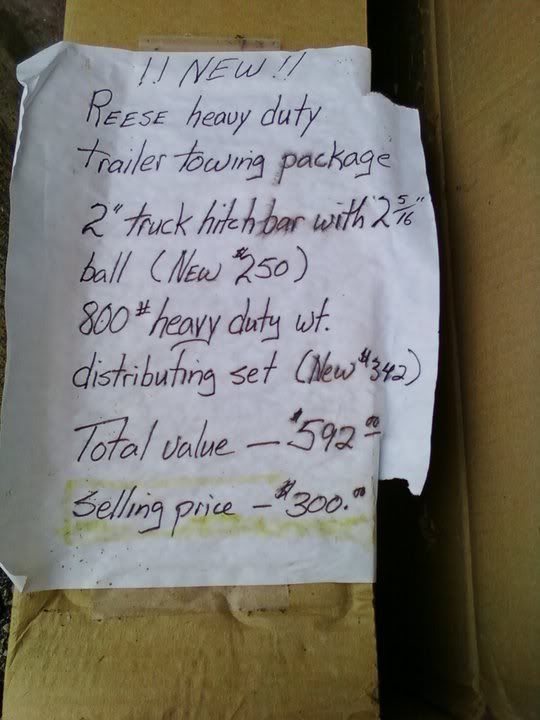 !! NEW !!
REESE heavy duty
trailer towing package
2" truck hitch bar with 2 5/16"
ball (NEW $250)
800# heavy duty wt.
distributing set (New $342)
Total value — $592.00
Selling price — $300.00